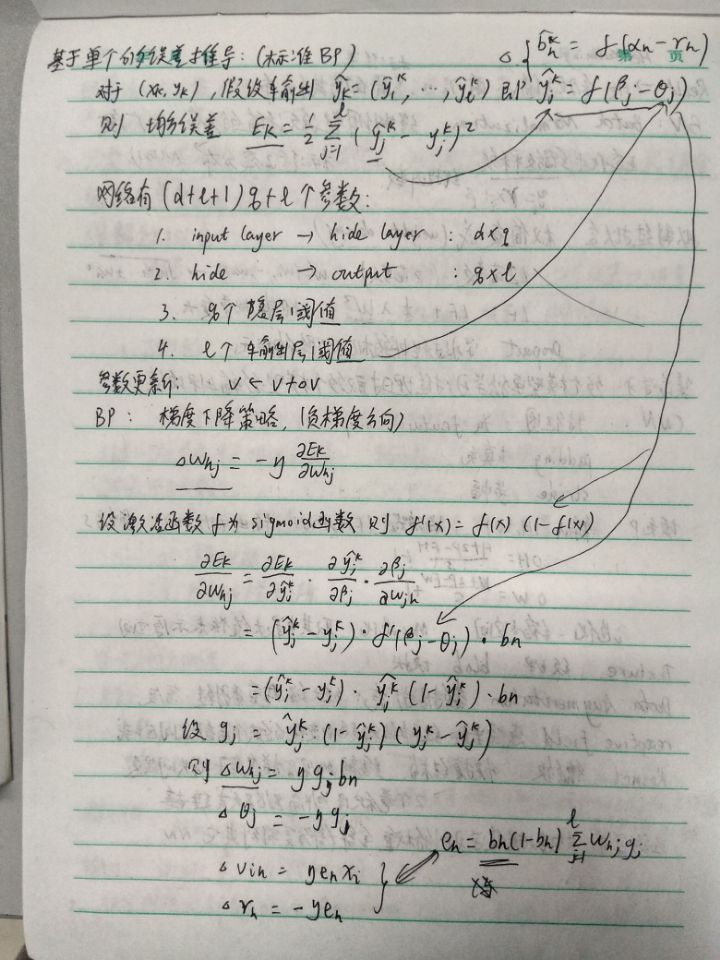 基于单个均方误差推导：(标准BP)
△ { b_h^k = f(α_h - r_h)
对于 (x_k, y_k), 假设输出 ŷ_k = (ŷ_1^k, ..., ŷ_l^k) 即 ŷ_j^k = f(β_j - θ_j)
则 均方误差 E_k = 1/2 Σ_{j=1}^{l} (ŷ_j^k - y_j^k)^2
网络有 (d+l+1)q+l 个参数：
1. input layer → hide layer : d×q
2. hide → output : q×l
3. q个隐层阈值
4. l个输出层阈值
参数更新： v ← v+△v
BP： 梯度下降策略, (负梯度方向)
△w_hj = -η ∂E_k/∂w_hj
设激活函数f为sigmoid函数 则 f'(x) = f(x) (1-f(x))
∂E_k/∂w_hj = ∂E_k/∂ŷ_j^k · ∂ŷ_j^k/∂β_j · ∂β_j/∂w_jh
= (ŷ_j^k - y_j^k) · f'(β_j - θ_j) · b_h
= (ŷ_j^k - y_j^k) · ŷ_j^k (1-ŷ_j^k) · b_h
设 g_j = ŷ_j^k · (1-ŷ_j^k) (y_j^k - ŷ_j^k)
则 △w_hj = η g_j b_h
△θ_j = -η g_j
e_h = b_h(1-b_h) Σ_{j=1}^{l} w_hj g_j
△v_ih = η e_h x_i
△r_h = -η e_h